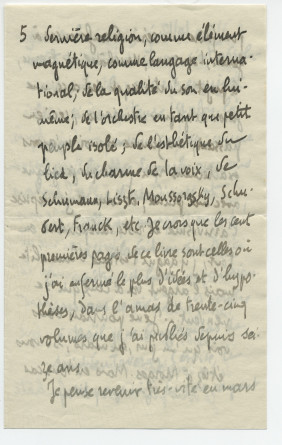 5 dernière religion, comme élément
magnétique, comme langage interna-
tional; de la qualité du son en lui-
même; de l'orchestre en tant que petit
peuple isolé; de l'esthétique du
lied, du charme de la voix, de
Schumann, Liszt, Moussorgsky, Schu-
bert, Franck, etc. Je crois que les cent
premières pages de ce livre sont celles où
j'ai enfermé le plus d'idées et d'hypo-
thèses, dans l'amas de trente-cinq
volumes que j'ai publiés depuis sei-
ze ans.
Je pense revenir très-vite en mars